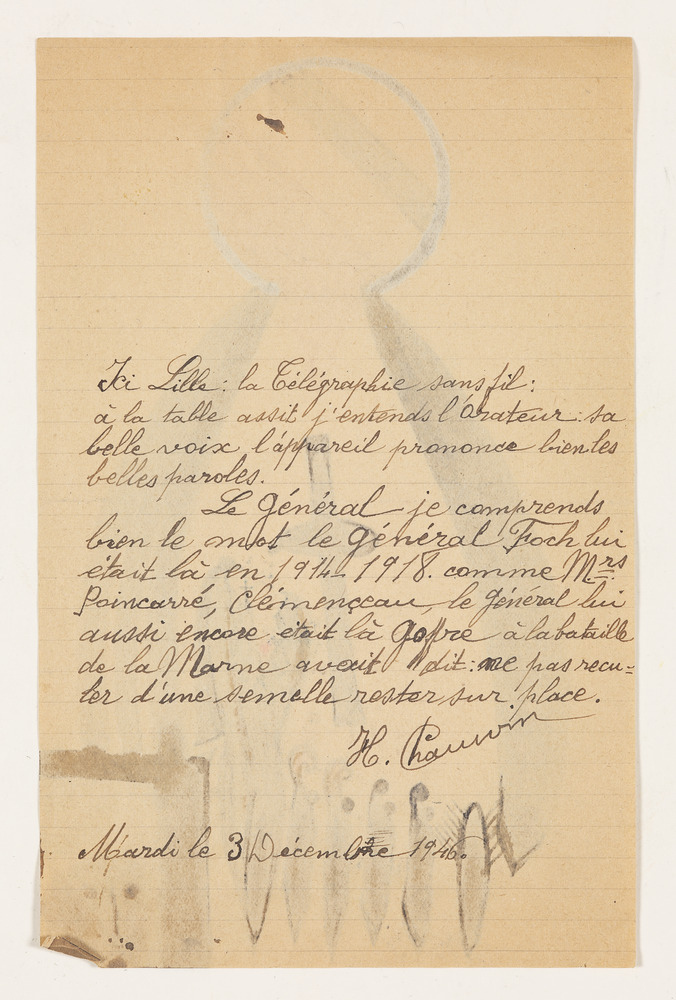 Ici Lille: la Télégraphie sans fil:
à la table assit j'entends l'Orateur: sa
belle voix l'áppareil prononce bien les
belles paroles.
Le Général je comprends
bien le mot le Général Foch lui
était là en 1914-1918. comme Mrs
Poincarré, Clémençeau, le général lui
aussi encore était là Goffre à la bataille
de la Marne avait dit: ne pas recu=
ler d'une semelle rester sur place.
H. Chauvin
Mardi le 3 Décembre 1946.